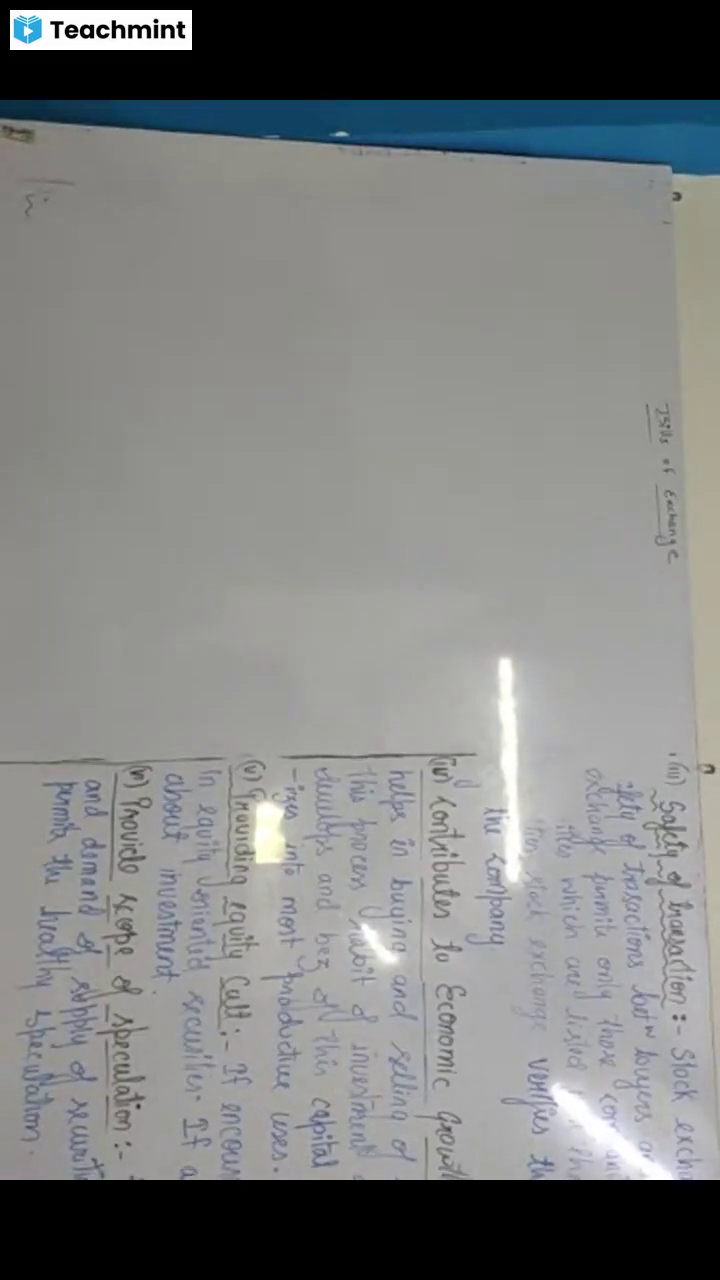 Teachmint
Bills of Exchange
(iii) Safety of transaction :- Stock excha
fety of trasactions btw buyers an
exchange permits only those com
ies which are listed
stock exchange verifies th
the company
(iv) Contributes to Economic Growth
helps in buying and selling of
this process habit of investment
develops and bez of this capital
-izes into most productive uses.
(v) Providing equity Cult :- If encour
in equity oriented securities. If a
about investment.
(vi) Provide scope of speculation :-
and demand of supply of securiti
permits the healthy speculation.